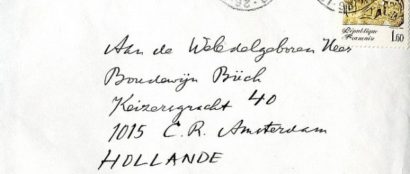 République
Française
1.60
Aan de Weledelgeboren Heer
Boudewijn Büch
Keizersgracht 40
1015 C.R. Amsterdam
HOLLANDE